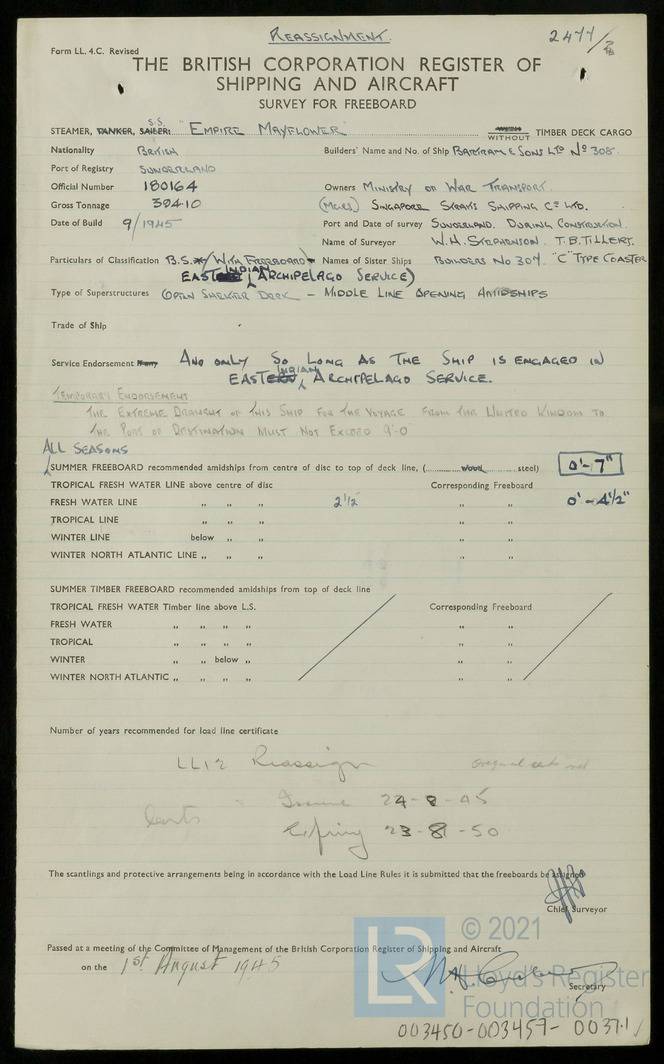 REASSIGNMENT.
2477/
Form LL. 4.C. Revised
THE BRITISH CORPORATION REGISTER OF
SHIPPING AND AIRCRAFT
SURVEY FOR FREEBOARD
STEAMER, TANKER, SAILER: S.S. "EMPIRE MAYFLOWER" WITHOUT TIMBER DECK CARGO
Nationality BRITISH Builders' Name and No. of Ship BARTRAM & SONS LTD Nº 308
Port of Registry SUNDERLAND
Official Number 180164 Owners MINISTRY OF WAR TRANSPORT.
Gross Tonnage 394.10 (MGRS) SINGAPORE STRAITS SHIPPING Cº LTD.
Date of Build 9/1945 Port and Date of survey SUNDERLAND. DURING CONSTRUCTION.
Name of Surveyor W.H. STEPHENSON. T.B. TILLERY.
Particulars of Classification B.S.* (WITH FREEBOARD) Names of Sister Ships BUILDERS NO 307. "C" TYPE COASTER
EAST INDIAN ARCHIPELAGO SERVICE)
Type of Superstructures OPEN SHELTER DECK - MIDDLE LINE OPENING AMIDSHIPS
Trade of Ship
Service Endorsement AND ONLY SO LONG AS THE SHIP IS ENGAGED IN
EAST INDIAN ARCHIPELAGO SERVICE.
TEMPORARY ENDORSEMENT
THE EXTREME DRAUGHT OF THIS SHIP FOR THE VOYAGE FROM THE UNITED KINGDOM TO
THE PORT OF DESTINATION MUST NOT EXCEED 9'-0"
ALL SEASONS
SUMMER FREEBOARD recommended amidships from centre of disc to top of deck line, (............wood............steel) 0'-7"
TROPICAL FRESH WATER LINE above centre of disc Corresponding Freeboard
FRESH WATER LINE " " " 2 1/2 " " 0'-4 1/2"
TROPICAL LINE " " " " "
WINTER LINE below " " " "
WINTER NORTH ATLANTIC LINE " " " " "
SUMMER TIMBER FREEBOARD recommended amidships from top of deck line
TROPICAL FRESH WATER Timber line above L.S. Corresponding Freeboard
FRESH WATER " " " " " "
TROPICAL " " " " " "
WINTER " " below " " "
WINTER NORTH ATLANTIC " " " " " "
Number of years recommended for load line certificate
LL12 Reassign
Issued 24-8-45
Expiring 23-8-50
The scantlings and protective arrangements being in accordance with the Load Line Rules it is submitted that the freeboards be assigned
Chief Surveyor
Passed at a meeting of the Committee of Management of the British Corporation Register of Shipping and Aircraft
on the 1st August 1945
Secretary
LR
© 2021
Lloyd's Register
Foundation
003450-003457-0037.1